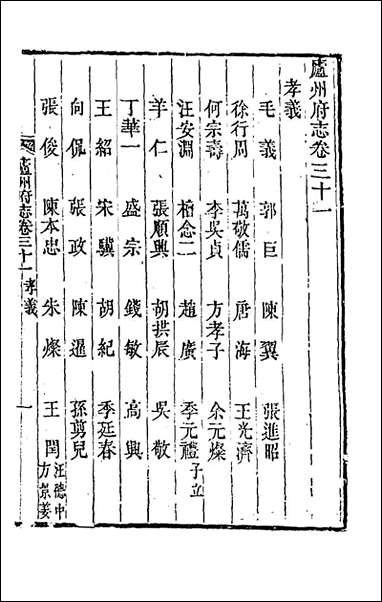 廬州府志卷三十一
孝義
毛義 郭巨 陳翼 張進昭
徐行周 萬敬儒 唐海 王光濟
何宗壽 李吳貞 方孝子 余元燦
汪安淵 柏念二 趙廣 季元禮子立
羊仁 張順興 胡拱辰 吳敬
丁華一 盛宗 錢敏 高興
王紹 宋驥 胡紀 季廷春
向侃 張政 陳暹 孫剪兒
張俊 陳本忠 朱燦 王閏汪德中方景姜
廬州府志卷三十一 孝義 一